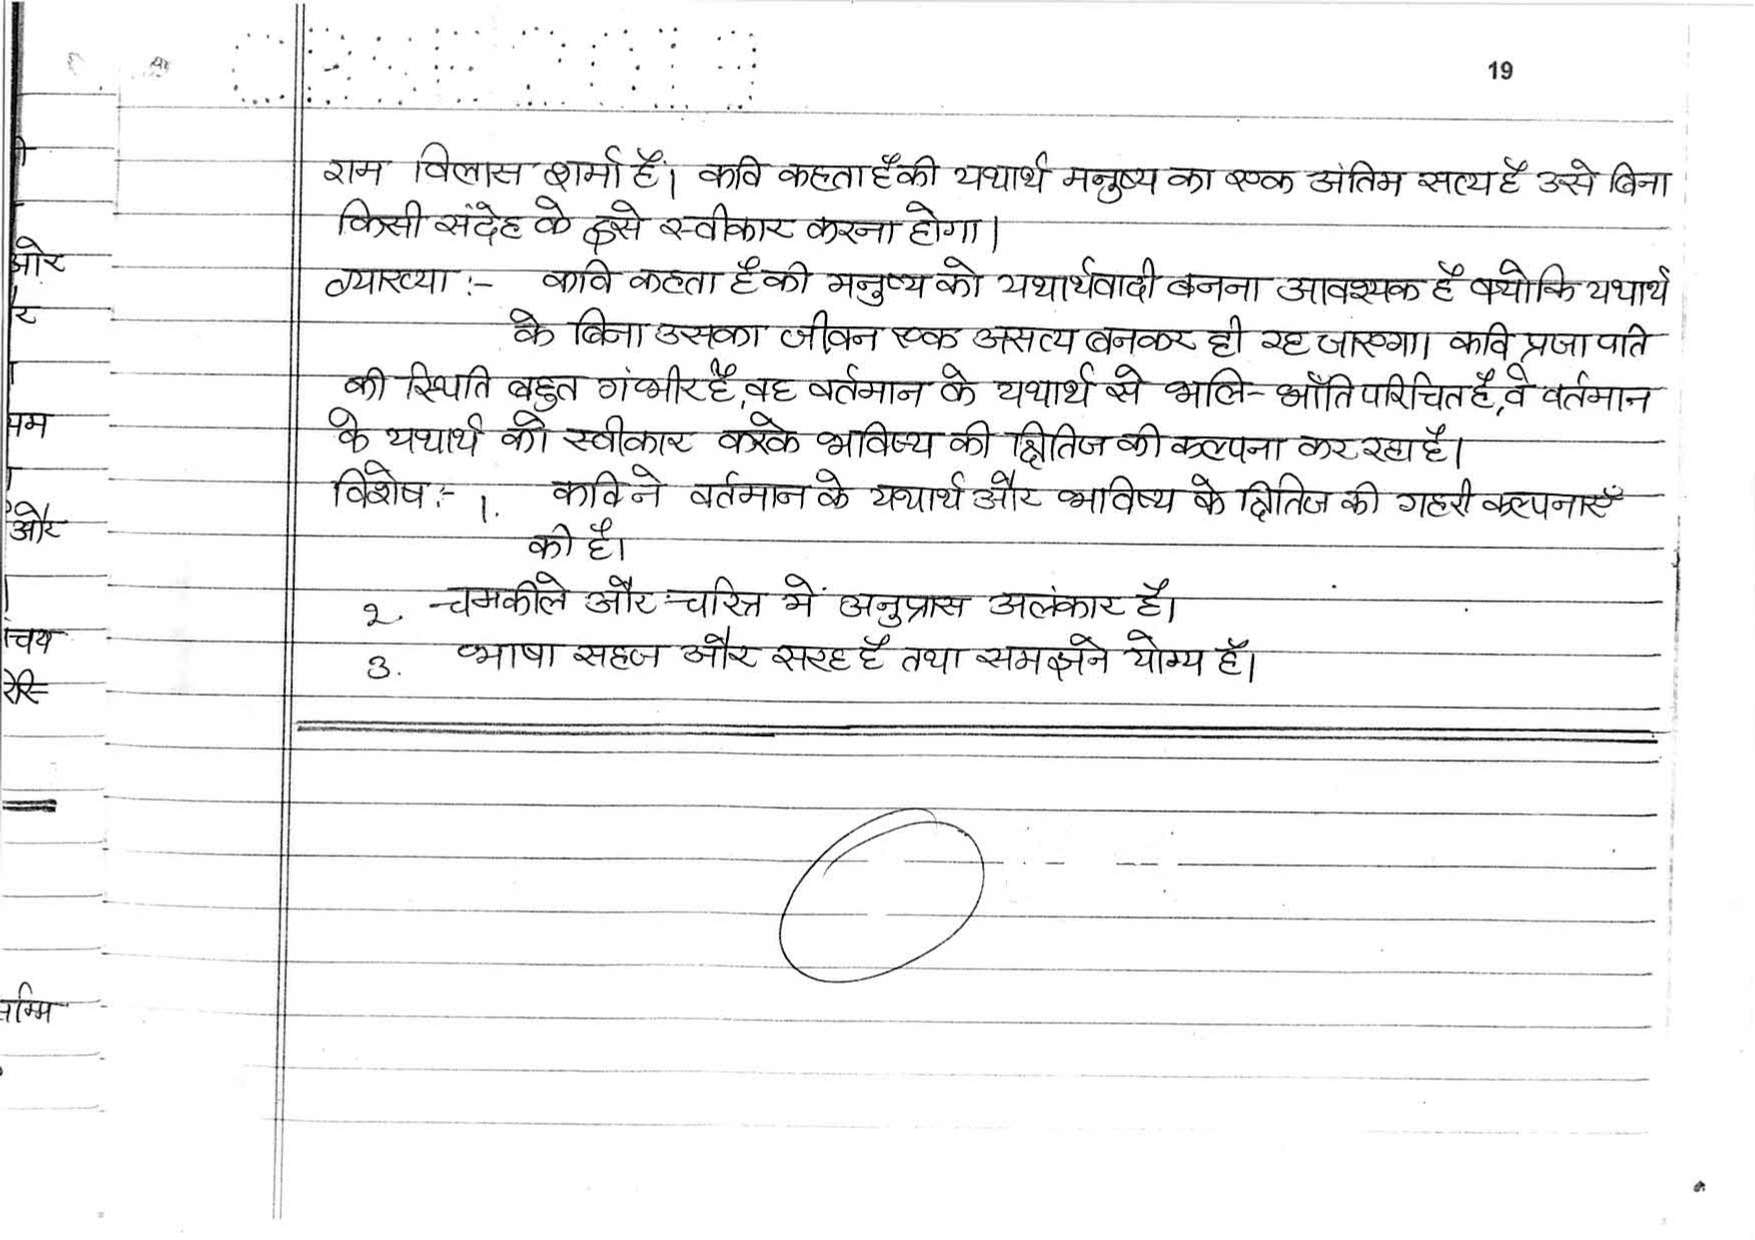 19
राम विलास शर्मा हैं। कवि कहता है की यथार्थ मनुष्य का एक अंतिम सत्य है उसे बिना
किसी संदेह के इसे स्वीकार करना होगा।
व्याख्या :- कवि कहता है की मनुष्य को यथार्थवादी बनना आवश्यक है क्योकि यथार्थ
के बिना उसका जीवन एक असत्य बनकर ही रह जाएगा। कवि प्रजापति
की स्थिति बहुत गंभीर है, वह वर्तमान के यथार्थ से भलि-भाँति परिचित है, वे वर्तमान
के यथार्थ को स्वीकार करके भविष्य की क्षितिज की कल्पना कर रहा है।
विशेष :- 1. कवि ने वर्तमान के यथार्थ और भाविष्य के क्षितिज की गहरी कल्पनाएँ
की है।
2. चमकीले और चरित्र में अनुप्रास अलंकार है।
3. भाषा सहज और सरह है तथा समझने योग्य है।
ओर
र
और